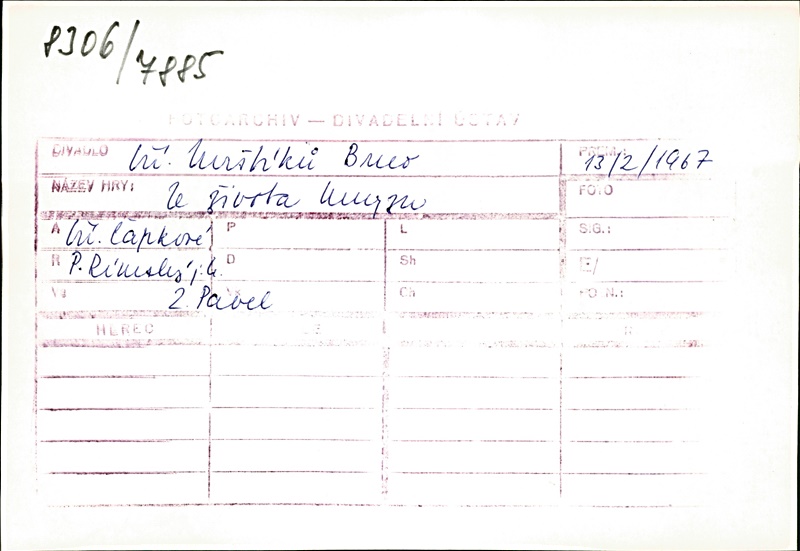 8306/7885
FOTOARCHIV — DIVADELNÍ ÚSTAV
DIVADLO bří. Mrštíků Brno PREM.: 13/2/1967
NÁZEV HRY: Ze života hmyzu FOTO
A bří. Čapkové P L SIG.:
R P. Rímský j.h. D Sh E/
Vý 2. Pavel Ch FO N.:
HEREC